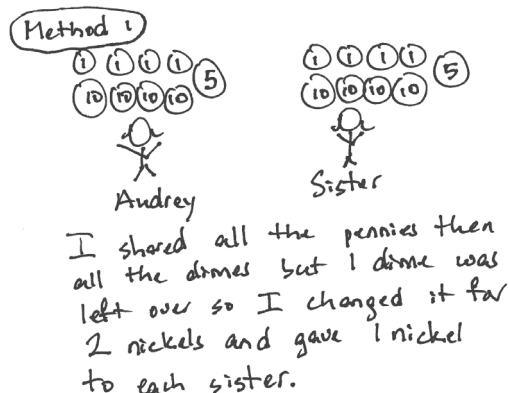 Method 1
1 1 1 1 5
10 10 10 10
1 1 1 1 5
10 10 10 10
Audrey
Sister
I shared all the pennies then
all the dimes but 1 dime was
left over so I changed it for
2 nickels and gave 1 nickel
to each sister.